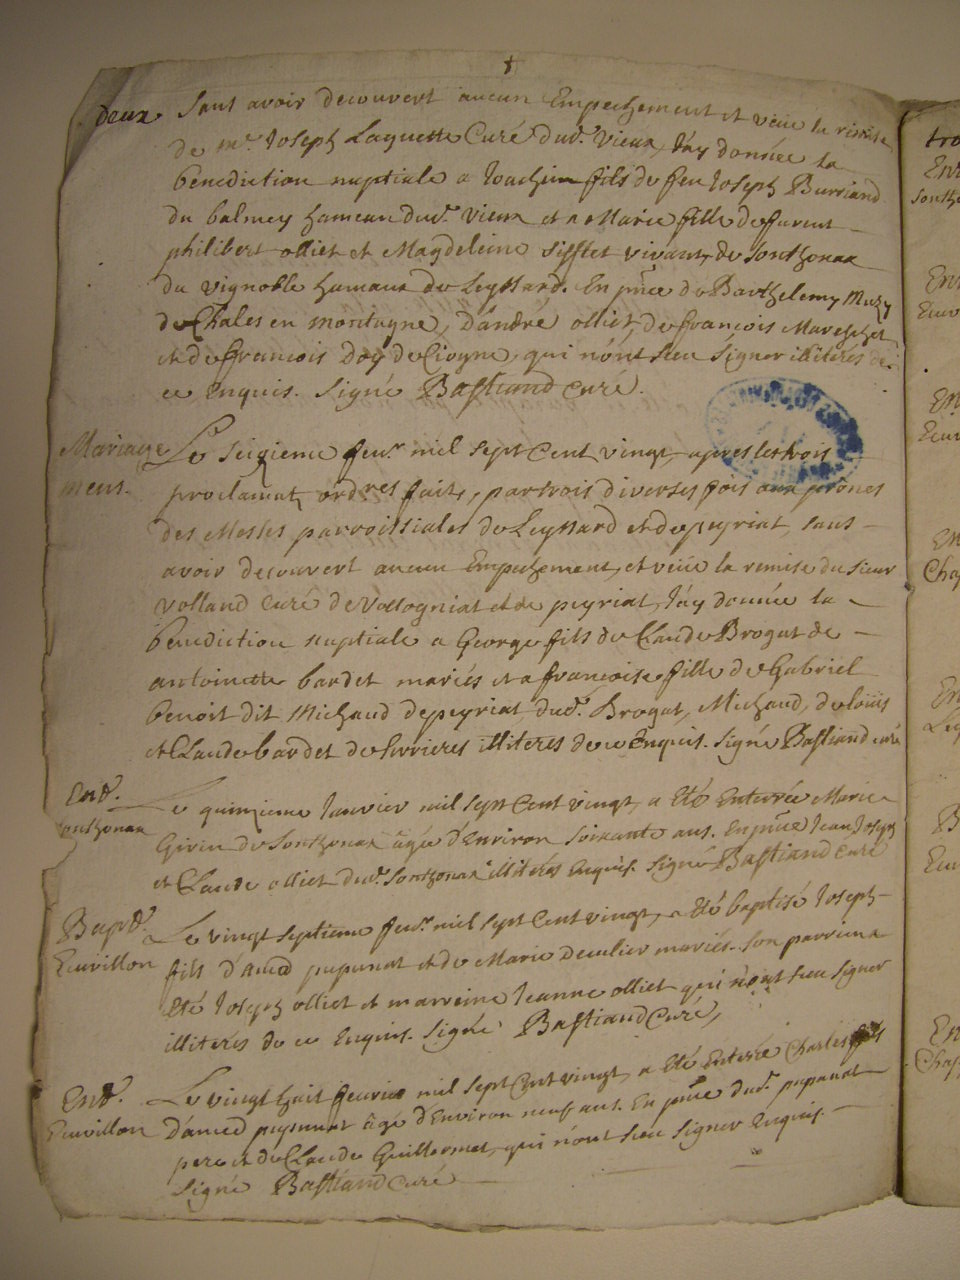 deux
Sans avoir decouvert aucun Empechement et veüe la remise
de mr. Joseph Laguette Curé dud. vieux, j'ay donnée la
benediction nuptiale a Joachim fils de feu Joseph Burriand
du balmey hameau dud. vieux et a Marie fille de furent
philibert olliet et Magdeleine sifflet vivants de Sonthonax
du vignoble hameau de Leyssard. En pnce de Barthelemy Muzy
de Chales en montagne, d'andré olliet, de françois Mareschet
et de françois Doy de Ciogne, qui n'ont sceu signer illiteres de
ce enquis. Signé Bastiand curé.
Mariage
Le seizieme fevr. mil sept cent vingt, apres les trois
proclamat. ordres faites, par trois diverses fois aux prônes
des Messes parroissiales de Leyssard et de peyriat, sans
avoir decouvert aucun Empechement, et veüe la remise du sieur
volland curé de Vollogniat et de peyriat, j'ay donnée la
benediction nuptiale a George fils de Claude Brogat de
antoinette bardet mariés et a françoise fille de Gabriel
benoit dit Michaud de peyriat. dud. Brogat, Michaud, de louis
et Claude bardet de Serrieres illiteres de ce enquis. Signé Bastiand curé
Ent.
sonthonax
Le quinzieme Janvier mil sept cent vingt, a eté Enterrée Marie
Girin de Sonthonax âgée d'environ soixante ans. En pnce Jean Joseph
et Claude olliet dud. Sonthonax illiterés enquis. Signé Bastiand curé
Bapt.
Ecuvillon
Le vingt septieme fevr. mil sept cent vingt, a eté baptisé Joseph
fils d'amed pupunat et de Marie Deculier mariés. Son parrein a
eté Joseph olliet et marreine Jeanne olliet qui n'ont sceu signer
illiterés de ce enquis. Signé Bastiand Curé,
Ent.
Ecuvillon
Le vingt huit fevrier mil sept cent vingt, a eté enterré Charles fils
d'amed pupunat âgé d'environ neuf ans. En pnce dud. pupunat
pere et de Claude Guillermet, qui n'ont sceu signer enquis.
Signé Bastiand curé